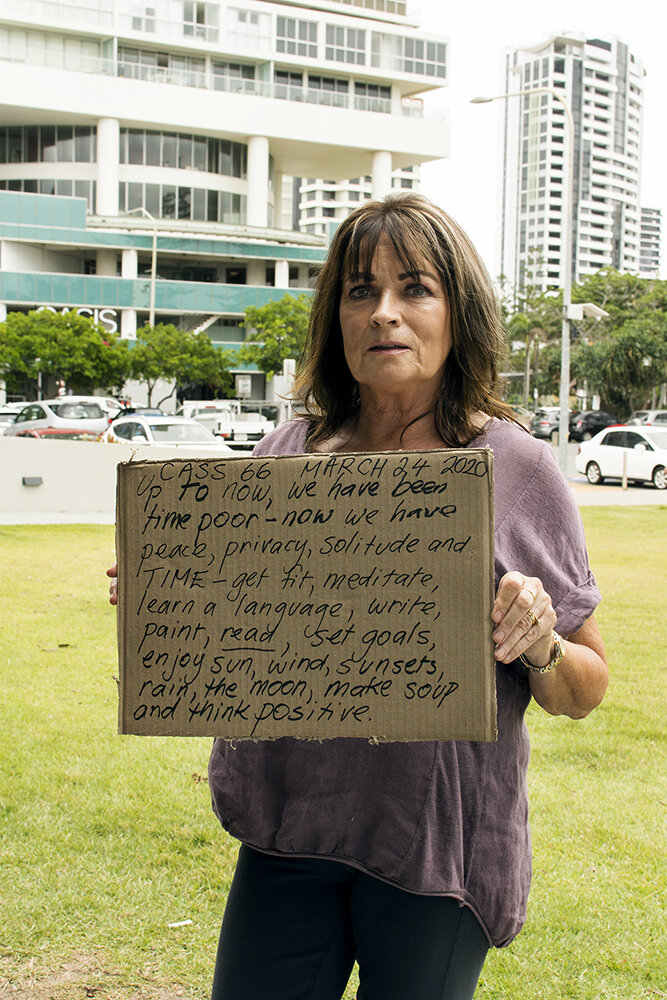 OASIS
CASS 66 MARCH 24 2020
Up to now, we have been
time poor - now we have
peace, privacy, solitude and
TIME - get fit, meditate,
learn a language, write,
paint, read, set goals,
enjoy sun, wind, sunsets,
rain, the moon, make soup
and think positive.